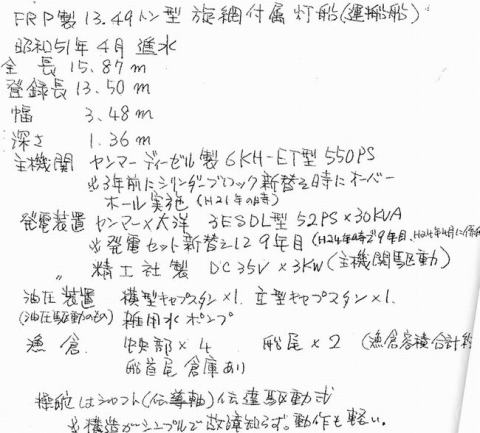 FRP製13.49トン型 旋網付属灯船(運搬船)
昭和51年4月進水
全長15.87m
登録長13.50m
幅 3.48m
深さ 1.36m
主機関 ヤンマーディーゼル製6KH-ET型550PS
※3年前にシリンダーブロック新替え時にオーバー
ホール実施(H21年の時)
発電装置 ヤンマー×大洋 3ESDL型52PS×30KVA
※発電セット新替えして9年目(H24年時で9年目、H24年4月に
〃 精工社製 DC35V×3KW(主機関駆動)
油圧装置 横型キャプスタン×1. 立型キャプスタン×1.
(油圧駆動のもの) 雑用水ポンプ
漁倉 中央部×4 船尾×2 (漁倉容積合計約
船首尾倉庫あり
操舵はシャフト(伝導軸)伝達駆動式
※構造がシンプルで故障知らず。動作も軽い。